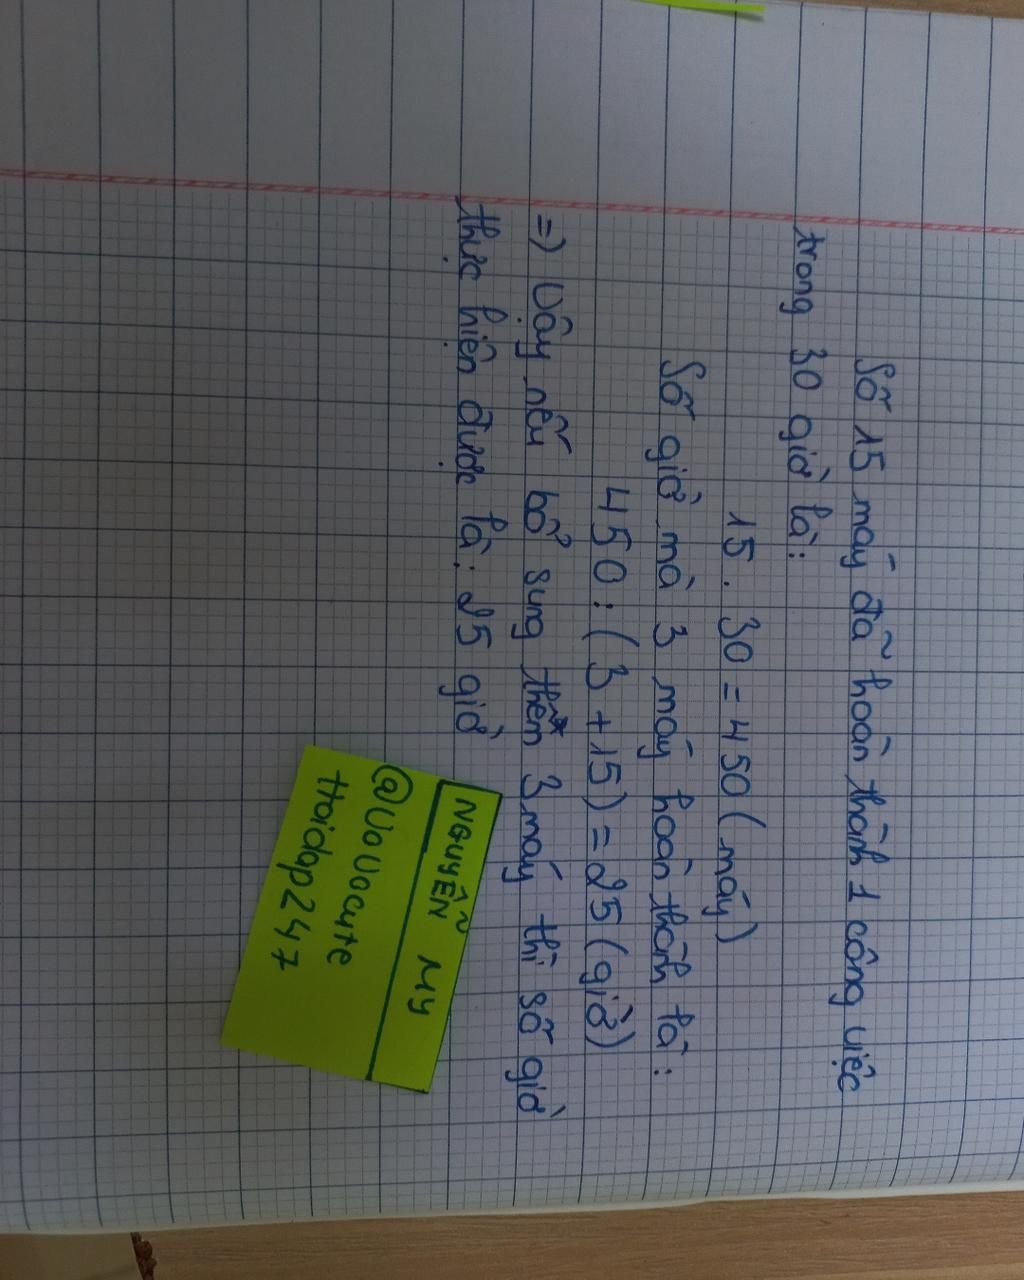 Số 15 máy đã hoàn thành 1 công việc
trong 30 giờ là:
15 . 30 = 450 ( máy )
Số giờ mà 3 máy hoàn thành là :
450 : ( 3 + 15 ) = 25 ( giờ )
=) Vậy nếu bổ sung thêm 3 máy thì số giờ
thực hiện được là : 25 giờ
NGUYỄN MY
@VoVocute
Hoidap247